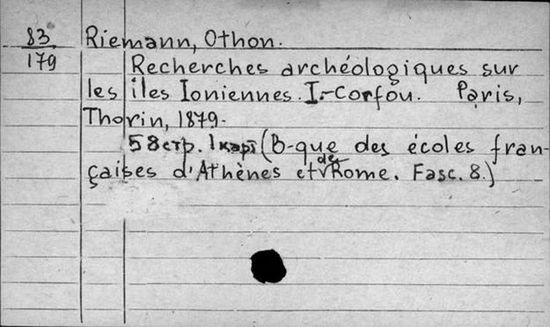 83 Riemann, Othon.
179 Recherches archéologiques sur
les îles Ioniennes. I.-Corfou. Paris,
Thorin, 1879.
58 стр. 1 карт (B-que des écoles fran-
çaises d'Athènes et de Rome. Fasc. 8.)